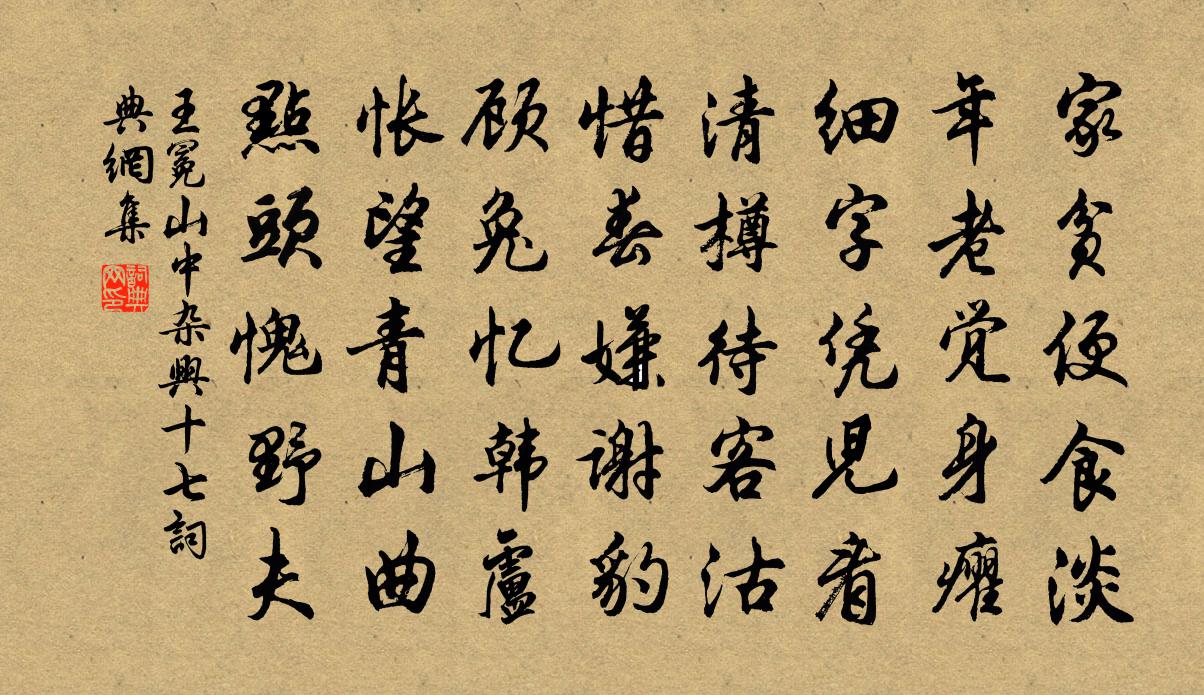 家贫便食淡
年老觉身癯
细字凭児看
清樽待客沽
惜春嫌谢豹
顾兔忆韩盧
怅望青山曲
點頭愧野夫
王冕山中杂興十七詞
典網集
詞典网印